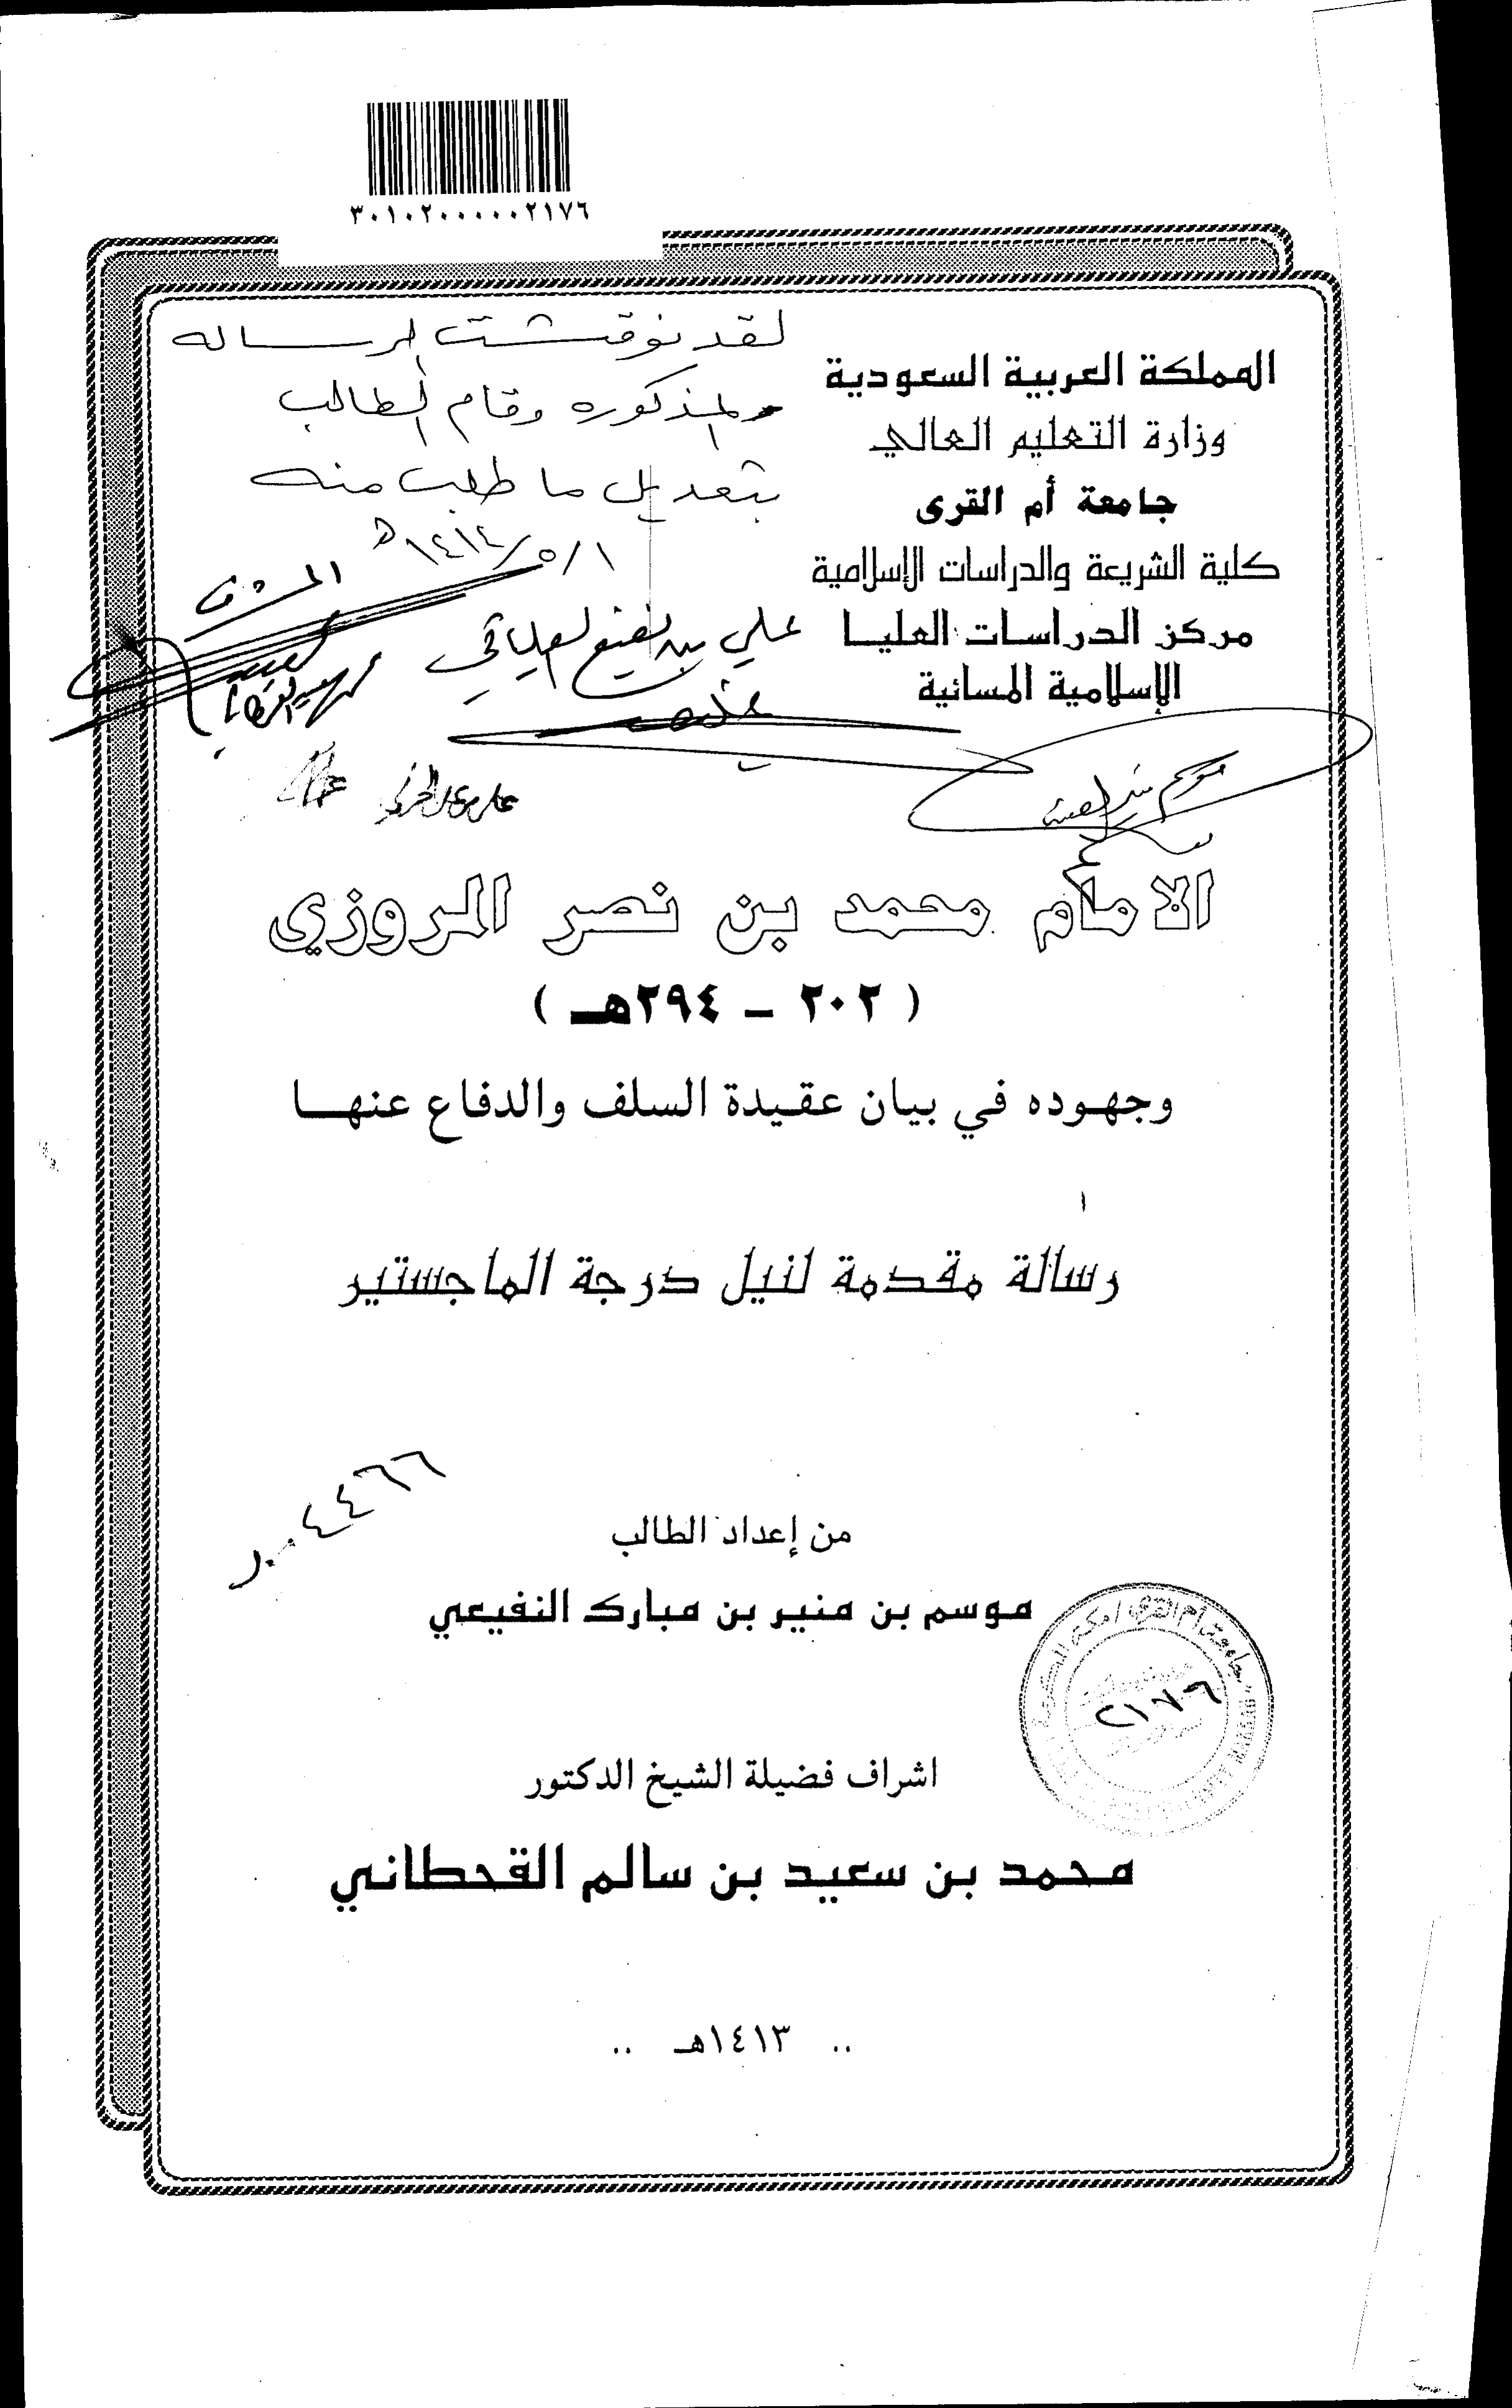 ٣٠١٠٢٠٠٠٠٠٢١٧٦
المملكة العربية السعودية
وزارة التعليم العالي
جامعة أم القرى
كلية الشريعة والدراسات الإسلامية
مركز الدراسات العليا
الإسلامية المسائية
لقد نوقشت الرساله
المذكوره وقام الطالب
بتعديل ما طلب منه
١/٥/١٤١٤هـ
المشرف
علي بن نفيع العلياني
الإمام محمد بن نصر المروزي
( ٢٠٢ - ٢٩٤هـ )
وجهوده في بيان عقيدة السلف والدفاع عنها
رسالة مقدمة لنيل درجة الماجستير
٤٤٦٦
من إعداد الطالب
موسم بن منير بن مبارك النفيعي
جامعة أم القرى / مكة المكرمة
٢١٧٦
اشراف فضيلة الشيخ الدكتور
محمد بن سعيد بن سالم القحطاني
.. ١٤١٣هـ ..